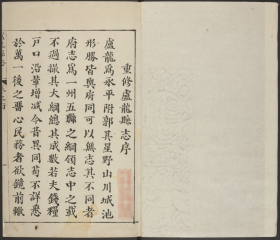 重修盧龍縣志序
盧龍爲永平附郭其星野山川城池
形勝皆與府同可以無志其不同者
府志爲一州五縣之綱領志中之載
不過撮其大綱總其成數若夫錢糧
戸口沿革增减今昔異同苟不詳悉
於萬一後之晋心民務者欲鏡前轍